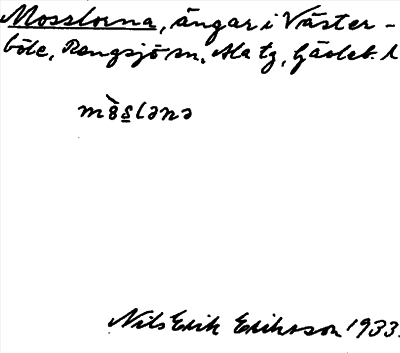 Mosslorna, ängar i Väster-
böle, Rengsjö sn, Ala tg, Gävleb. l
mò̱slənə
Nils Erik Eriksson 1933.